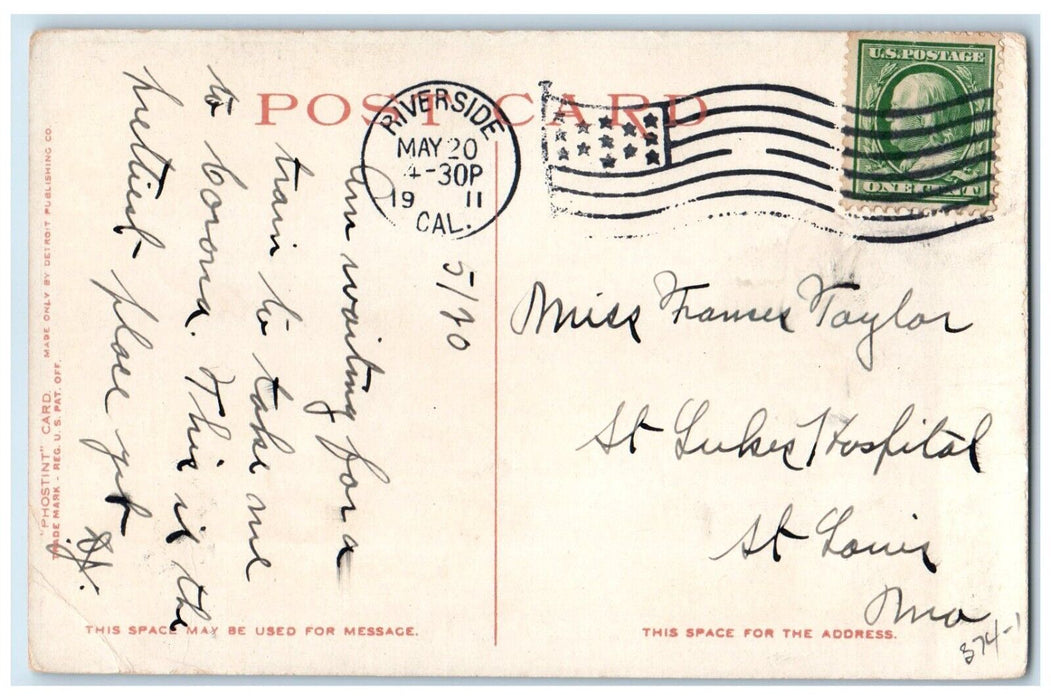 POST CARD
RIVERSIDE
MAY 20
4-30P
19 11
CAL.
U.S. POSTAGE
ONE CENT
5/20
Am waiting for a
train to take me
to Corona. This is the
prettiest place yet
Miss Frances Taylor
St Lukes Hospital
St Louis
Mo
374-1
THIS SPACE MAY BE USED FOR MESSAGE.
THIS SPACE FOR THE ADDRESS.
"PHOSTINT" CARD. MADE ONLY BY DETROIT PUBLISHING CO.
TRADE MARK - REG. U. S. PAT. OFF.